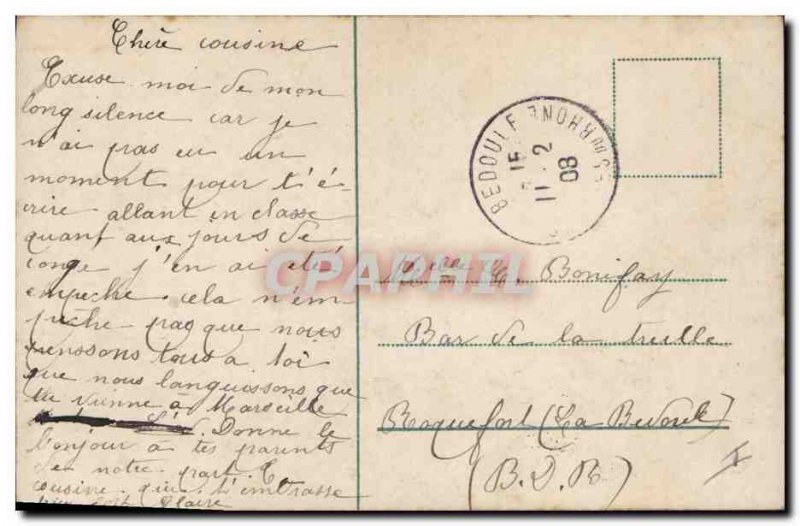 Chère cousine
Excuse moi de mon
long silence car je
n'ai pas eu un
moment pour t'é-
crire allant en classe
quant aux jours de
conge j'en ai été
empeche. cela n'em-
peche pas que nous
penssons tous a toi
que nous languissons que
tu vienne à Marseille
Donne le
bonjour à tes parents
de notre part. Ta
cousine qui t'embrasse
bien fort Claire
BEDOULE
BCHES DU RHONE
15
11. 2
08
Melle Bonifay
Bar de la treille
Roquefort (La Bedoule)
(B.D.R)
CPAPHIL